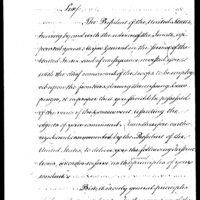 The President of the United States,
having by and with the advice of the Senate, ap-
pointed you a Major General in the Army of the
United States, and of assigning you
with the chief command of the troops to be employ-
ed upon the frontiers, during the ensuing
paign, it is proper that you should be possessed
of the views of the Government, respecting the
objects of your command. I am therefore au-
thorized, and commanded by the President of the
United States, to deliver you the following instruc-
tions, in order to form the principles of your
conduct.
it is only general principles